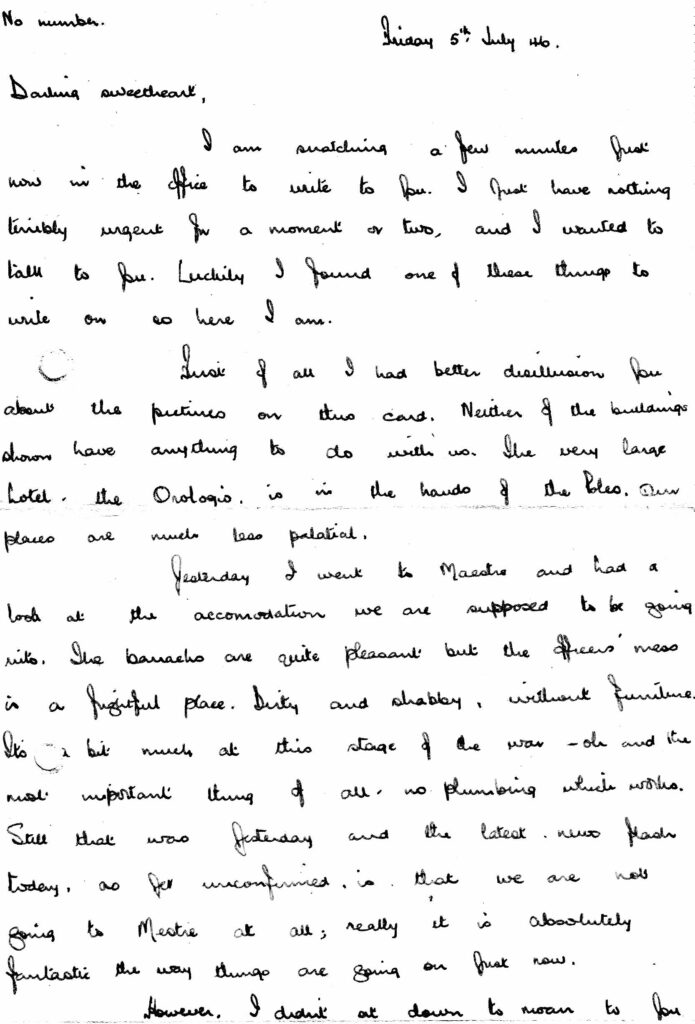 No number.
Friday 5th July 46.
Darling sweetheart,
I am snatching a few minutes just
now in the office to write to you. I just have nothing
terribly urgent for a moment or two, and I wanted to
talk to you. Luckily I found one of these things to
write on so here I am.
First of all I had better disillusion you
about the pictures on this card. Neither of the buildings
shown have anything to do with us. The very large
hotel - the Orologio, is in the hands of the Poles. Our
places are much less palatial.
Yesterday I went to Maestre and had a
look at the accomodation we are supposed to be going
into. The barracks are quite pleasant but the officers' mess
is a frightful place. Dirty and shabby, without furniture.
Its a bit much at this stage of the war - oh and the
most important thing of all - no plumbing which works.
Still that was yesterday and the latest news flash
today, as yet unconfirmed, is that we are not
going to Mestre at all; really it is absolutely
fantastic the way things are going on just now.
However, I didn't sit down to moan to you